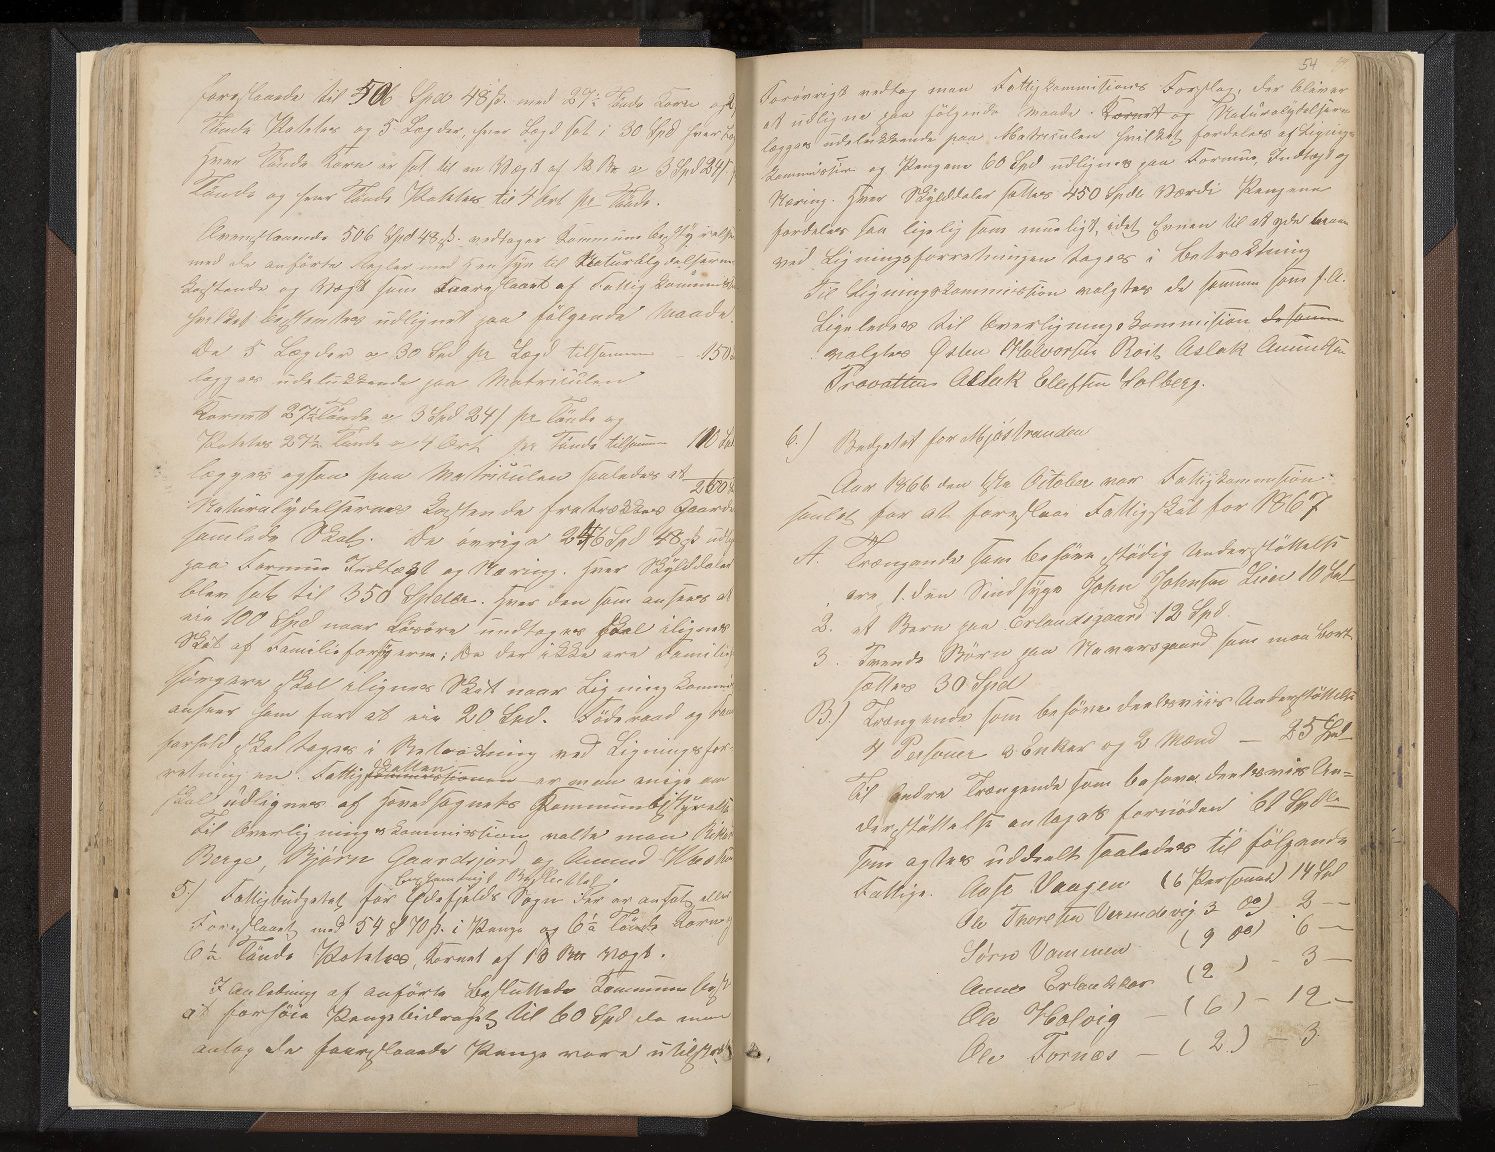 foreslaaede til 506 Spd 48 ß. med 27½ Tønde Korn og 2
Tønde Poteter og 5 Lægder, hver Lægd sat i 30 Spd hver
hver Tønde Korn er sat til en Vægt af 12 a 3 Spd 24 ß
Tønde og hver Tønde Poteter til 4 Ort pr Tønde.
Ovenstaaende 506 Spd 48 ß. vedtager Kommunebestyrelse
med de anførte Regler med Hensyn til Naturalydelsernes
Kostende og Vægt som foreslaaet af Fattigkommis
hvilket bestemtes udlignet paa følgende Maade.
De 5 Lægder a 30 Spd pr Lægd tilsammen - 150
lægges udelukkende paa Matriculen
Kornet 27½ Tønde a 3 Spd 24 ß pr Tønde og
Poteter 27½ Tønde a 4 Ort pr Tønde tilsammen 110 Spd
lægges ogsaa paa Matriculen saaledes at 260
Naturalydelsernes Kostende fratrækkes Gaard
samlede Skat. De øvrige 246 Spd 48 ß udl
paa Formue Indtægt og Næring. Hver Skylddaler
blev sat til 350 Spdlr. Hver den som ansees at
eie 100 Spd naar Løsøre undtages skal ilignes
Skat af Familieforsørgerne; De der ikke ere Familie
sørgere skal ilignes Skat naar Ligningskommi
ansees ham for at eie 20 Spd. Føderaad og
forhold skal tages i Betragtning ved Ligningsfor-
retningen. Fattigskatten kommissionen er man enige om
skal udlignes af hovedsognets Kommunebestyrelse
Til Overligningskommission valte man
Berge, Bjørn Gaardsjord og Amund
5.) Fattigbudgetet for Ødefjelds Sogn er ansat eller
Foreslaaet med 54 70 ß. i Penge og 6½ Tønde Korn
6½ Tønde Poteter, Kornet af 13 Vægt.
I Anledning af anførte besluttede Kommunebest
at forhøie Pengebidraget til 60 Spd da man
antog de foreslaaede Penge vare utilstræk
54
Forøvrigt vedtog man Fattigkommisionens Forslag, der bliver
at udligne paa følgende Maade. Kornet og Naturalydelserne
lægges udelukkende paa Matriculen hvilket fordeles af Lignings
kommission og Pengene 60 Spd udlignes paa Formue, Indtægt og
Næring. Hver Skylddaler sættes 450 Spds Værdi Pengene
fordeles saa ligelig som mueligt, idet Evnen til at yde
ved Ligningsforretningen tages i betragtning
Til Ligningskommission valgtes de samme som f. A.
Ligeledes til Overligningskommision de samme
valgtes Østen Halvorsen Roit Aslak Amundsen
Provatten Aslak Elefsen Solberg.
6.) Budgetet for Mjøstranden
Aar 1866 den October var Fattigkommission
samlet for at foreslaa Fattigskat for 1867
A. Trængende som behøve stødig Understøttelse
ere 1. den Sindsyge John Johnsen Lien 10 Spd
2. et Barn paa Erlandsgaard 12 Spd.
3. Trende Børn paa Naversgaard som maa bort
sættes 30 Spd
B.) Trængende som behøve deelsviis Understøttelse
4 Personer 2 Enker og 2 Mænd — 25 Spd
Til andre Trængende som behøve deelsvis Un=
derstøttelse antages fornøden 61 Spdlr
som agtes uddeelt saaledes til følgende
Fattige. Aase Vaagen (6 Personer) 14 Spd
Ole Thorsten Verendevig 3 do) 2 —
Søren Vammen (9 do) 6 —
Anne Erlandskaas (2 ) - 3 —
Ole Holvig — (6) — 12 —
Ole Fornæs — (2) — 3